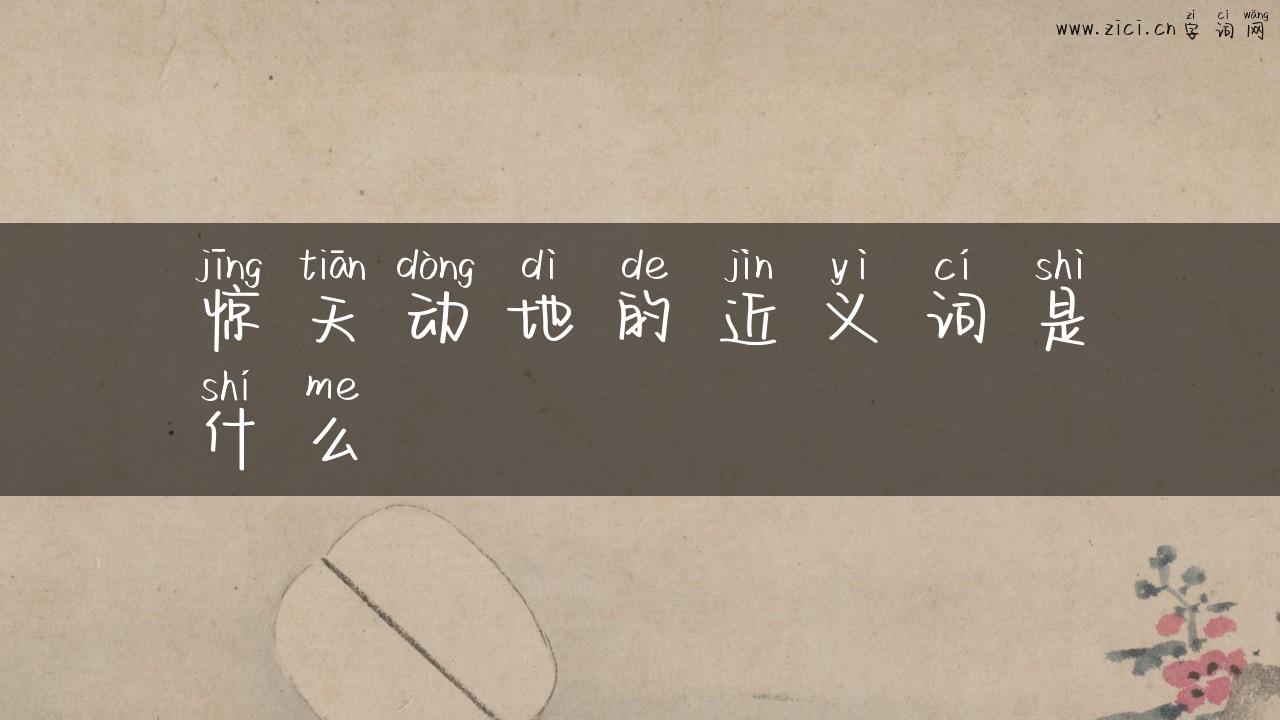 zì cí wǎng
www.zici.cn 字词网
jīng tiān dòng dì de jìn yì cí shì
惊天动地的近义词是
shí me
什么